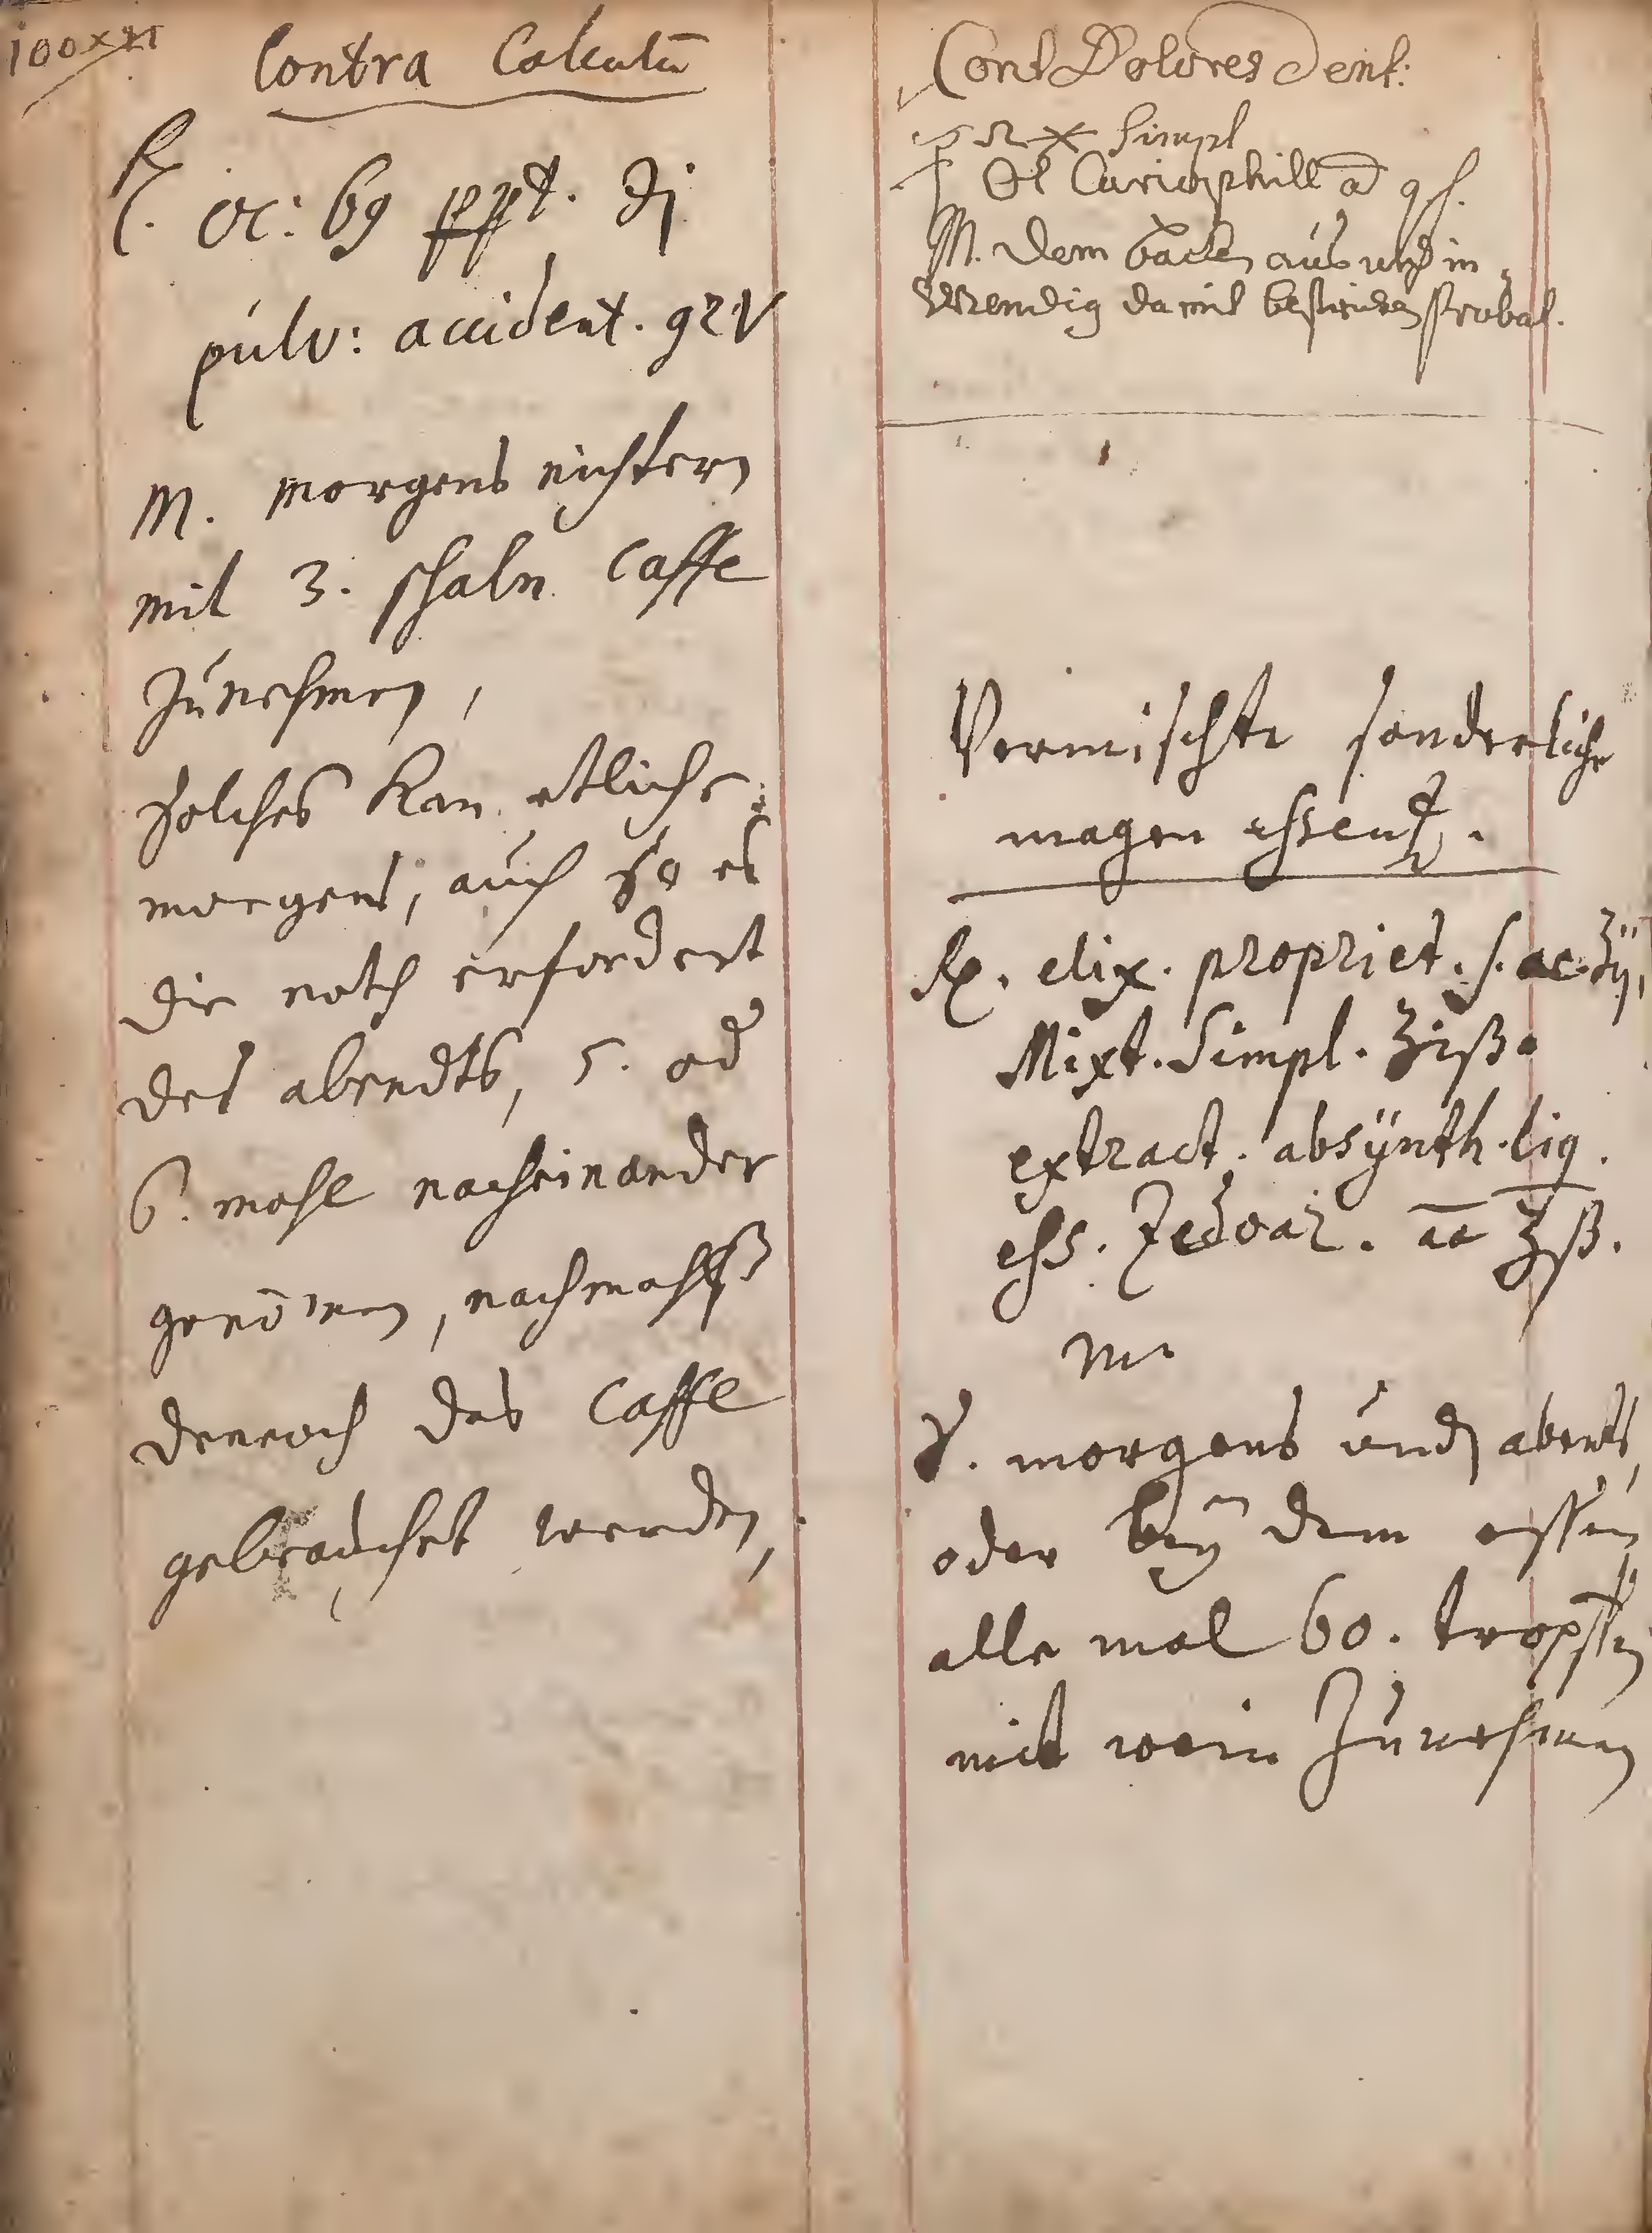 Contra Calculū
℞. oc: 69 ppt. ʒj
pulv: accident. gr V
M. Morgens nichtern
mit 3. schaln Caffe
zu nehmen,
Solches Kan etliche
morgens, auch so es
die noth erfordert
des abendts, 5. od
6. mahl nacheinander
genōmen, nachmahls
dennoch das Caffe
gebrauchet werden,
Cont Dolores Dent:
Simpl
Ol Cariophill a͞a q s.
M. dem backen aus und in
wendig damit bestrichen probat.
Vermischte sonderliche
magen essentz.
℞. elix. propriet. s. ac. ℥ij,
Mixt. Simpl. ℥iß.
extract. absÿnth. liq.
ess. Zedoar. a͞a ℥ß.
M.
S. morgens und abents,
oder beÿ dem essen
alle mal 60. tropffen
mit wein zu nehmen